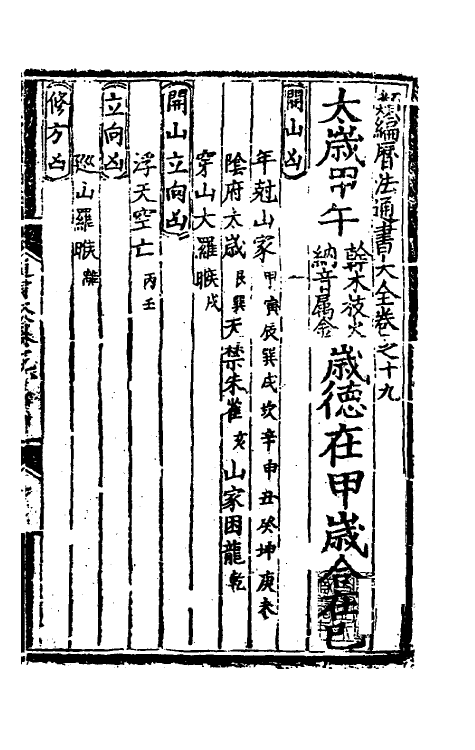 類編曆法通書大全卷之十九
太歲甲午 幹木枝火 納音屬金 歲德在甲歲合在己
開山凶
年尅山家 甲寅辰巽戌坎辛申丑癸坤庚未
陰府太歲 艮巽 天禁朱雀 亥 山家困龍 乾
穿山大羅睺 戌
開山立向凶
浮天空亡 丙壬
立向凶
廵山羅睺 離
修方凶